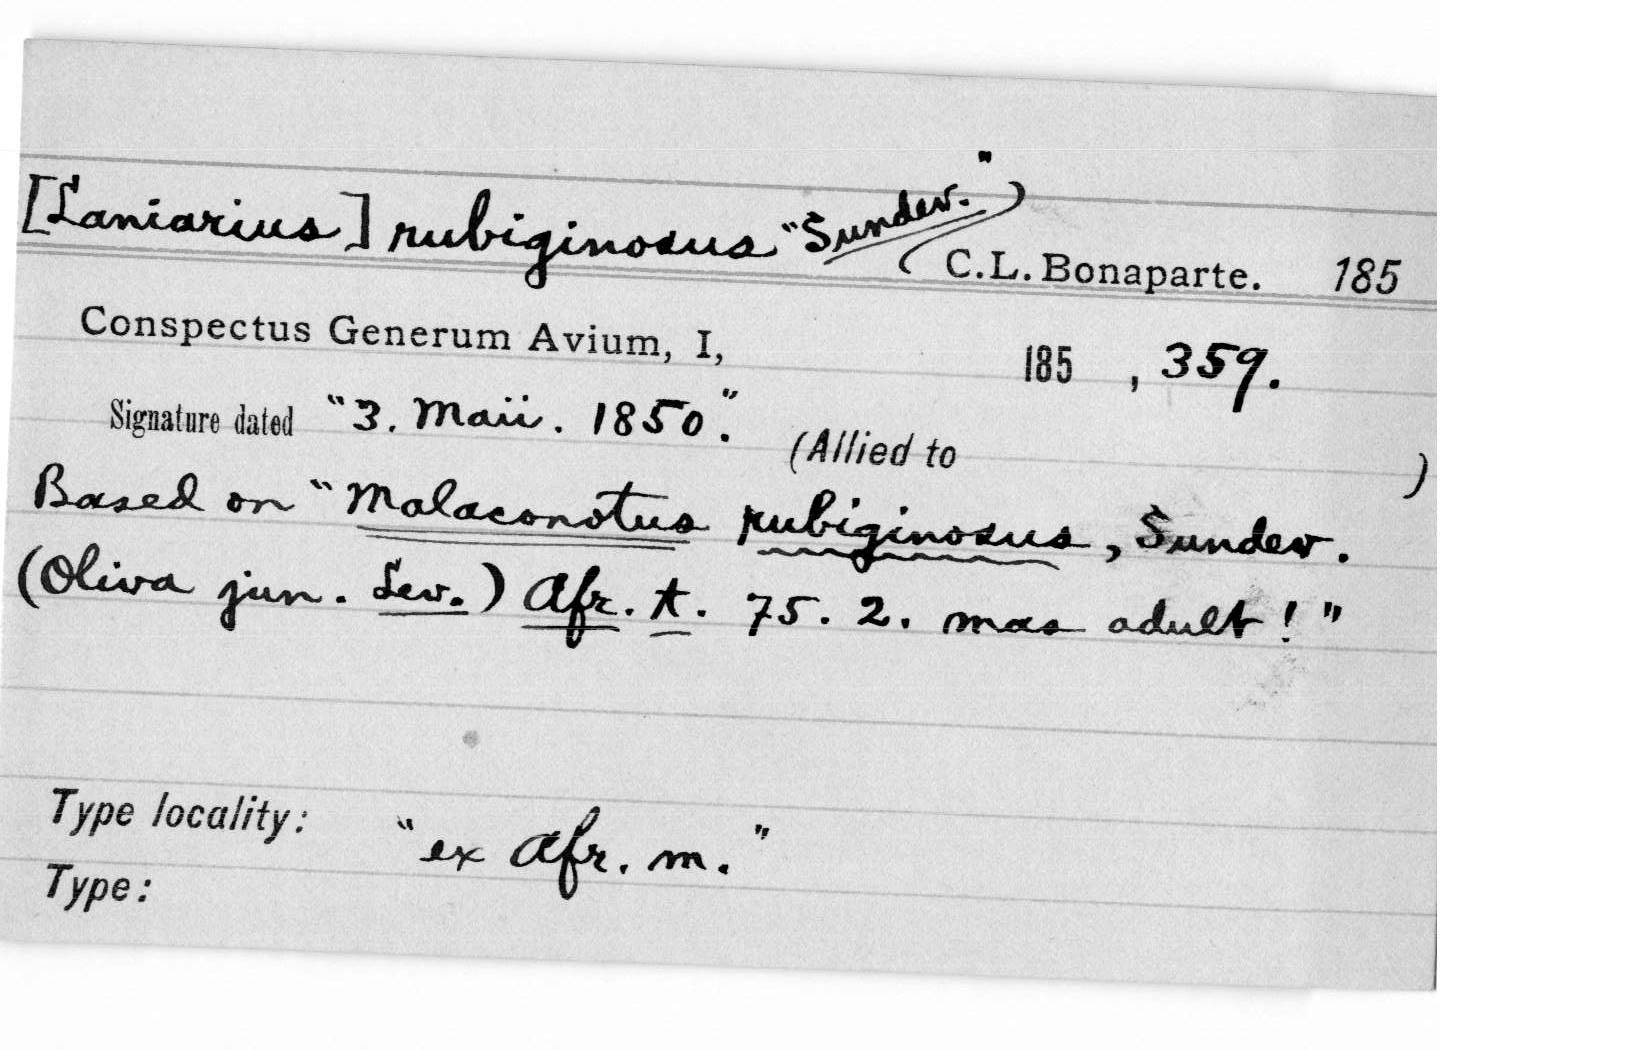 [Laniarius] rubiginosus "Sundev."
(C.L. Bonaparte.) 185
Conspectus Generum Avium, I, 185 , 359.
Signature dated "3. Maii. 1850."
(Allied to )
Based on "Malaconotus rubiginosus, Sundev.
(Oliva jun. Lev.) Afr. t. 75. 2. mas adult!"
Type locality: "ex Afr. m."
Type: